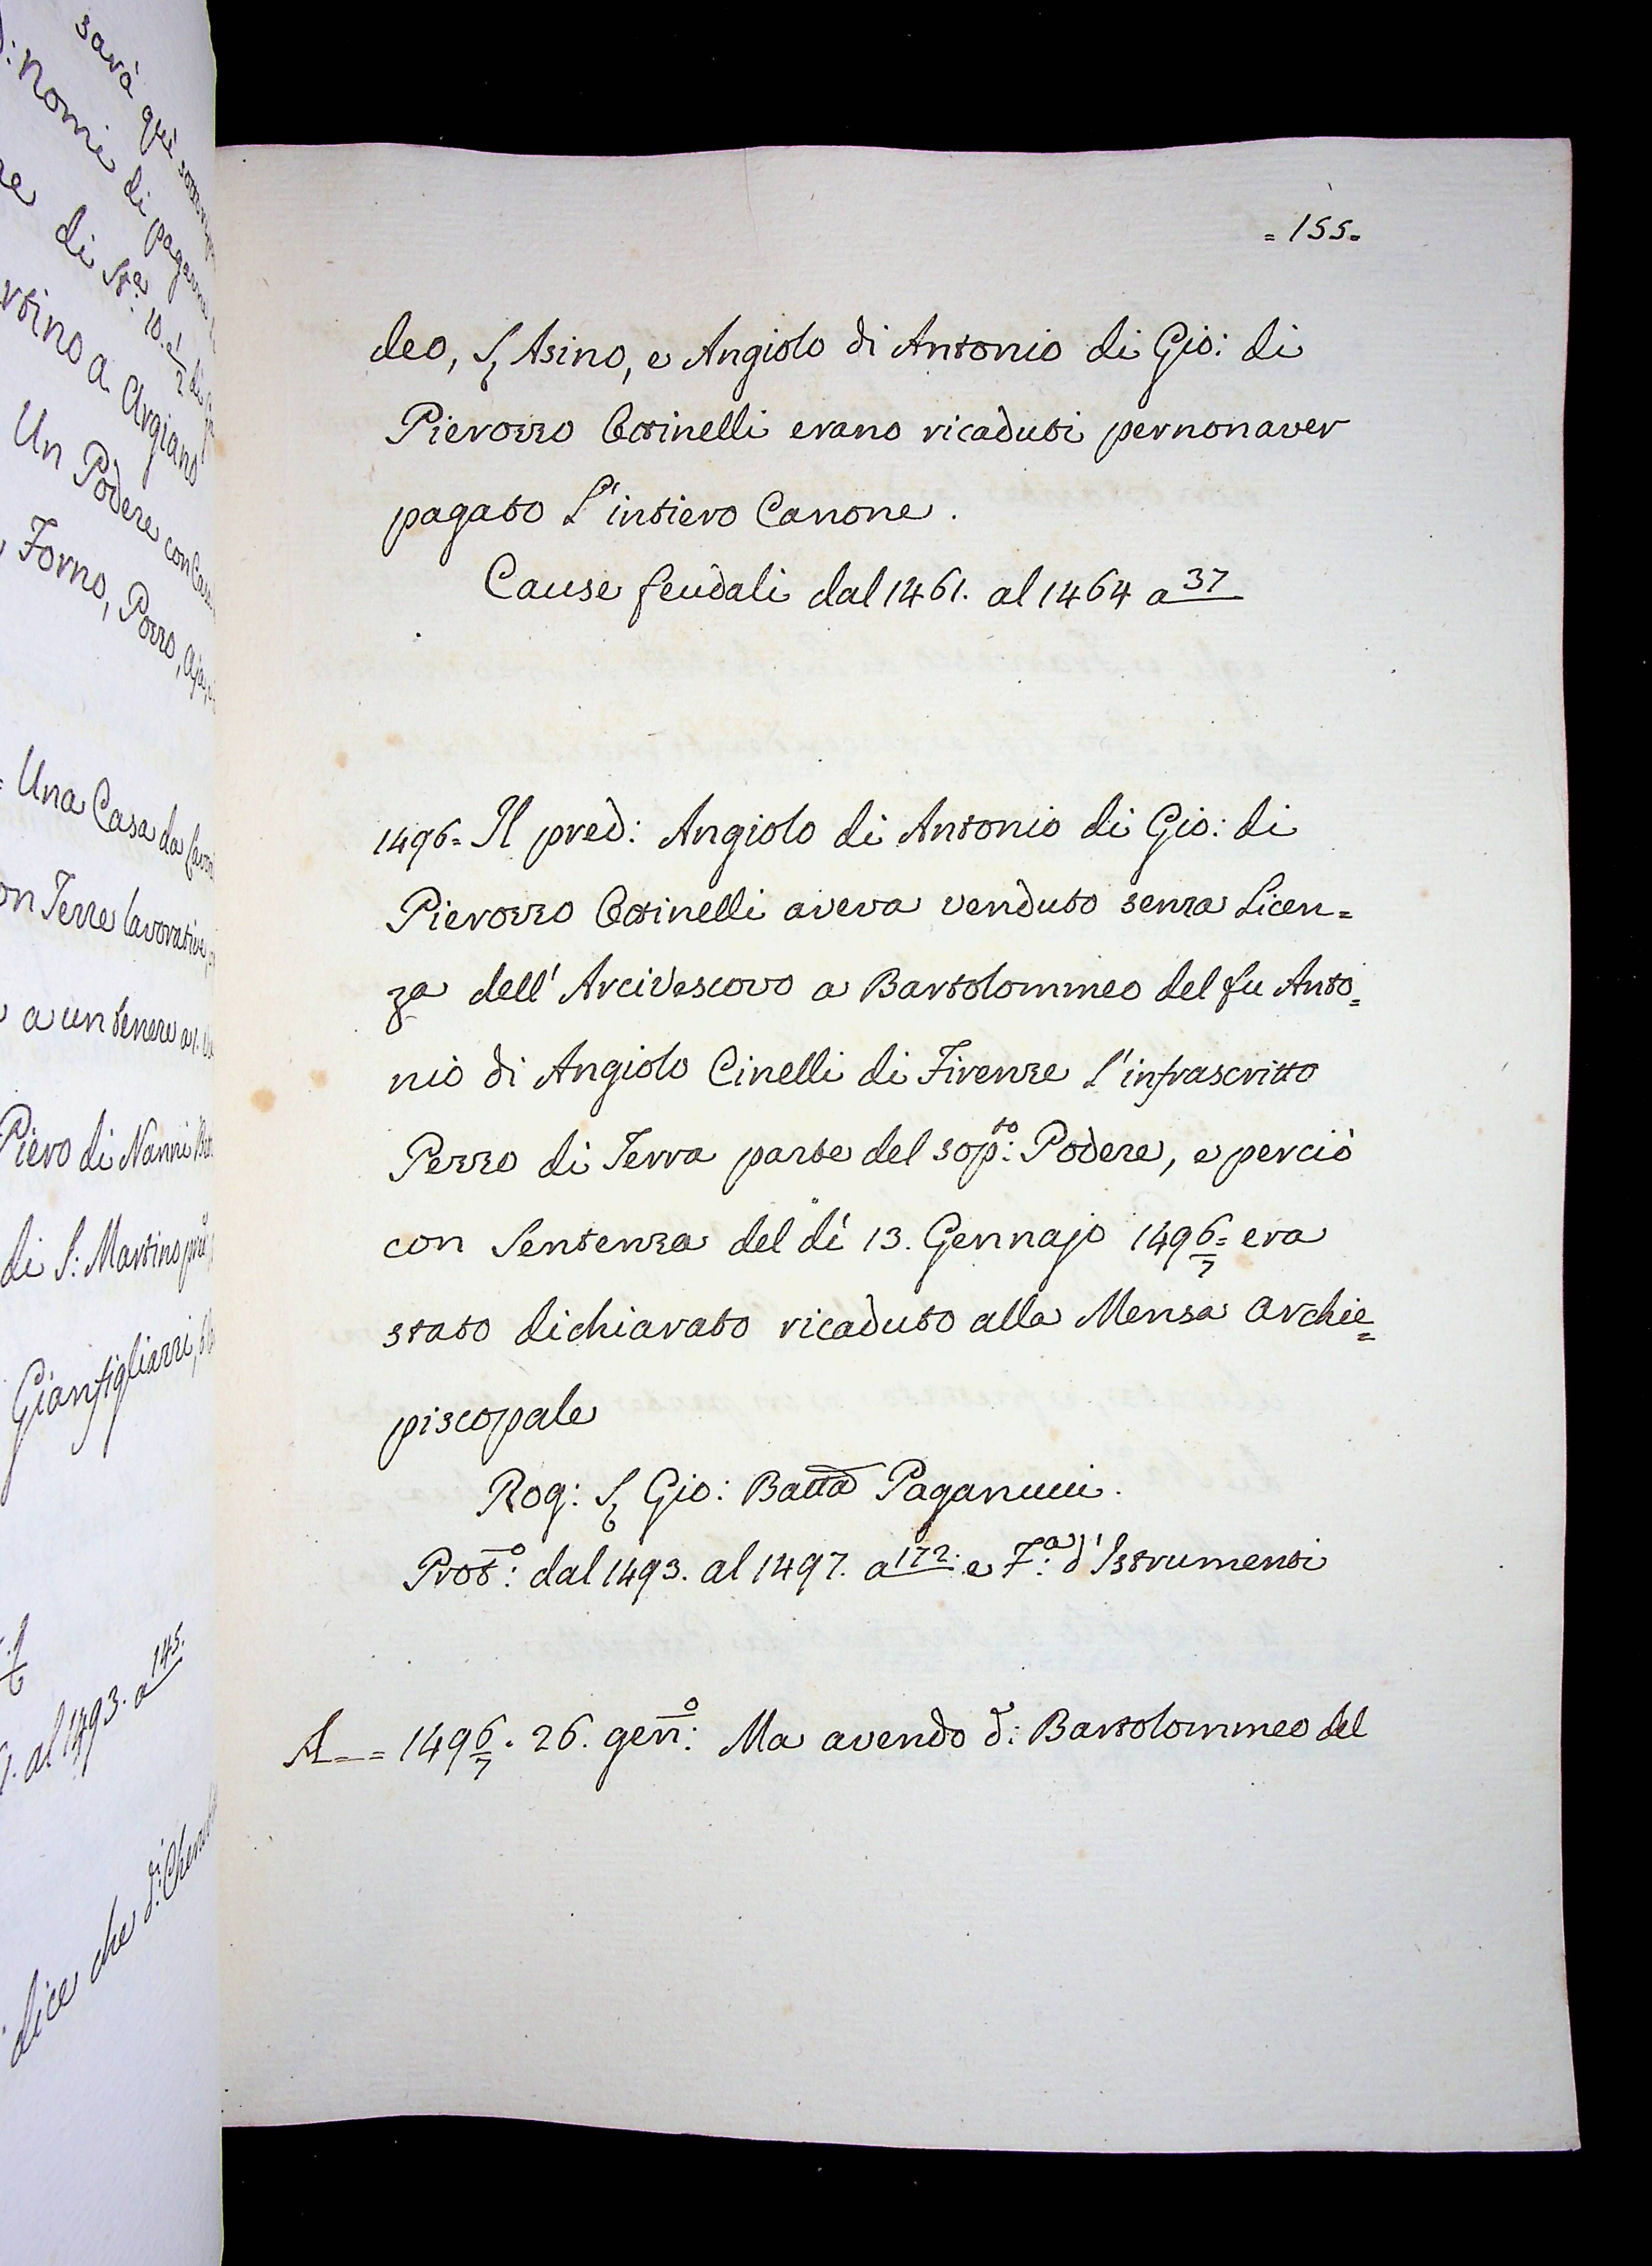 sarà quì
: Nomi di pagare
re di St.ª 10. e 1/2 di
rtino a Argiano
Un Podere con Casa
, Forno, Pozzo, Aja,
= Una Casa da
on Terre lavorative,
a un tenere a
Piero di Nanni
di S: Martino
Gianfigliazzi,
. al 1493. a 145.
dice che d:
= 155=
deo, S. Asino, e Angiolo di Antonio di Gio: di
Pierozzo Cosinelli erano ricaduti per non aver
pagato l'intiero Canone.
Cause feudali dal 1461. al 1464 a 37
1496= Il pred: Angiolo di Antonio di Gio: di
Pierozzo Cosinelli aveva venduto senza Licen=
za dell' Arcivescovo a Bartolommeo del fu Anto=
nio di Angiolo Cinelli di Firenze l'infrascritto
Pezzo di Terra parte del sop:to Podere, e perciò
con Sentenza del dì 13. Gennajo 1496/7= era
stato dichiarato ricaduto alla Mensa Archie=
piscopale
Rog: S. Gio: Batta Paganucci.
Prot:o dal 1493. al 1497. a 172. e F:a d'Istrumenti
A = 1496/7. 26. gen:o Ma avendo d: Bartolommeo del